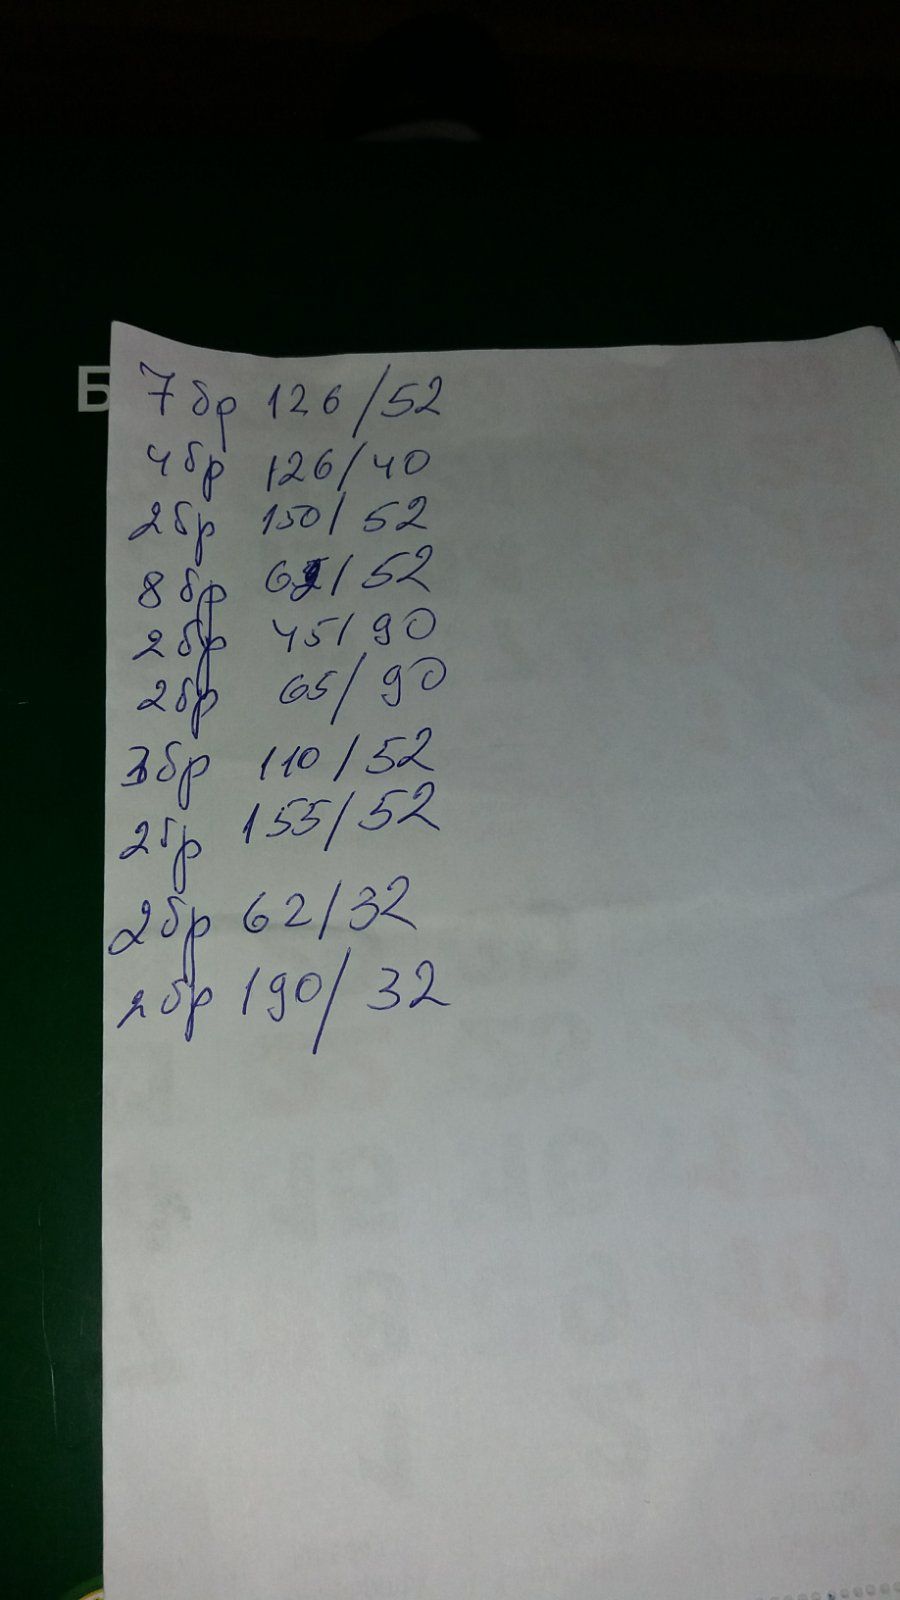 Б
7 бр 126/52
4 бр 126/40
2 бр 150/52
8 бр 62/52
2 бр 45/90
2 бр 65/90
3 бр 110/52
2 бр 155/52
2 бр 62/32
2 бр 190/32